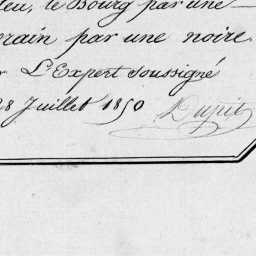 leu, le Bourg par une
rrain par une noire.
L'Expert soussigné
28 Juillet 1850
Dupit